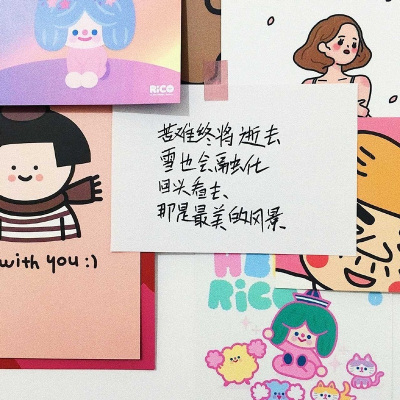 RiCO
苦难终将逝去
雪也会融化
回头看去、
那是最美的风景
with you :)
RiCO